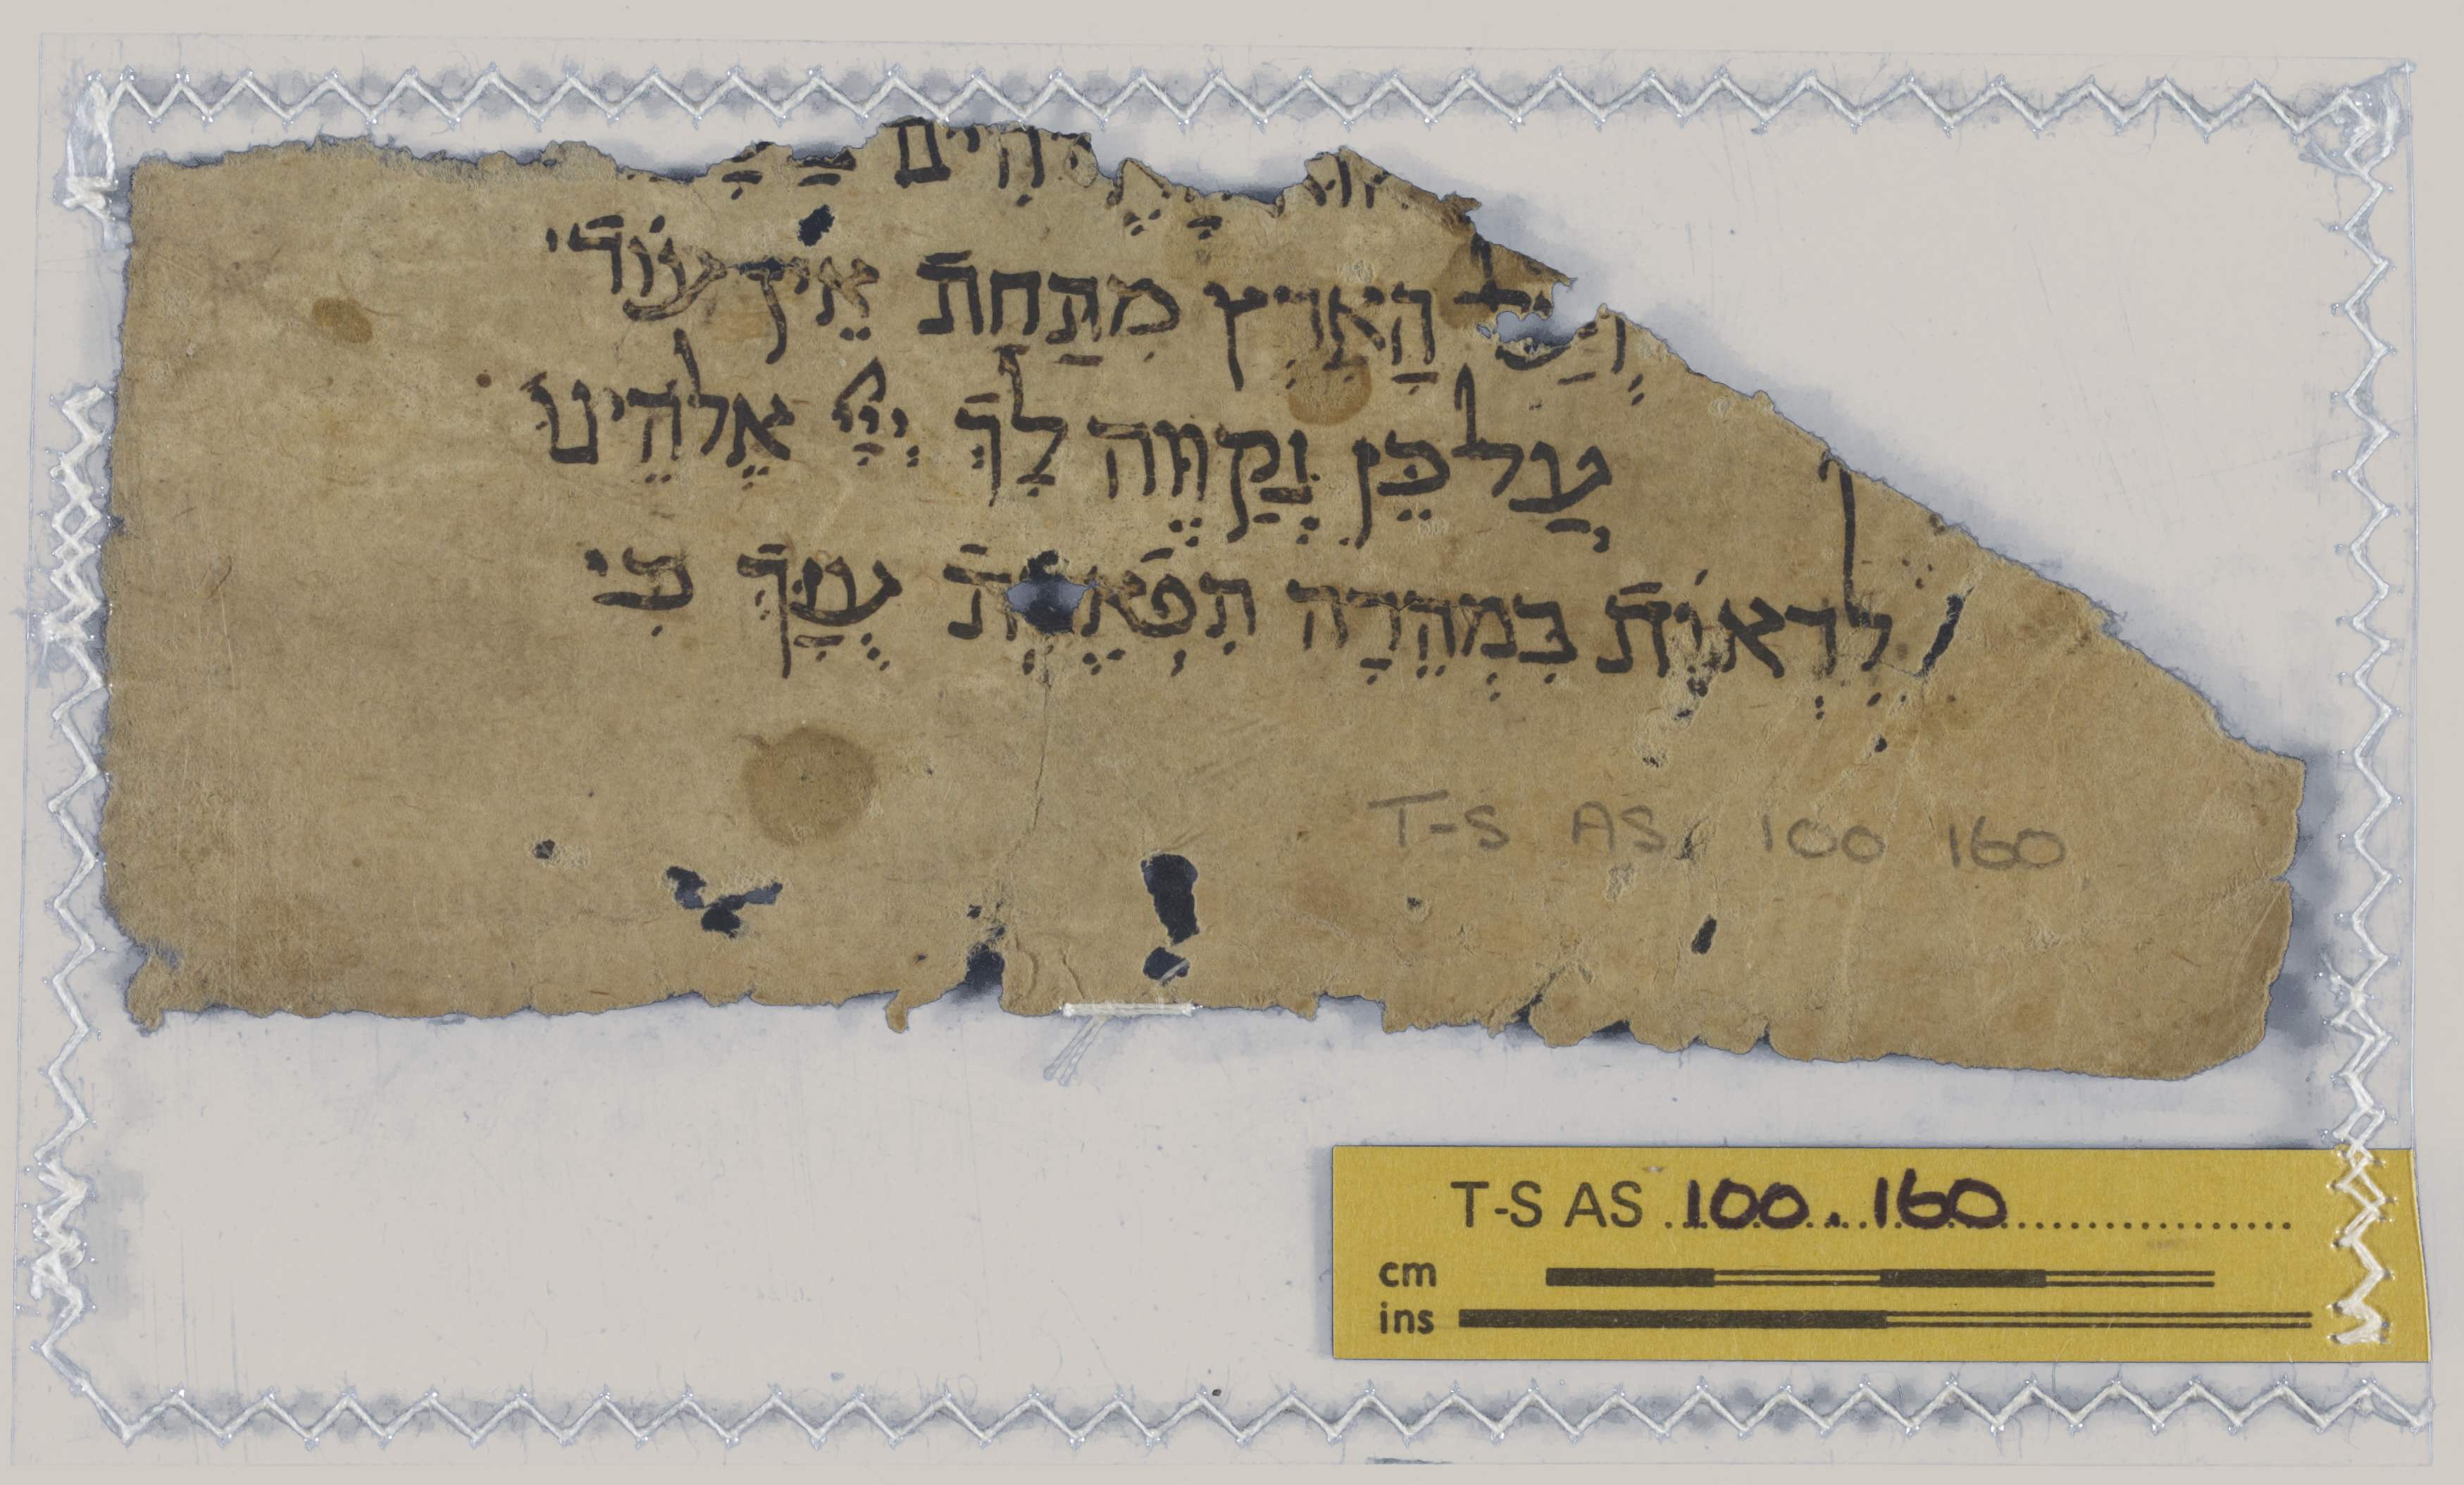 הָאָרֶץ מִתַּחַת אֵין עוֹד
עַל כֵּן נְקַוֶּה לָךְ יְיָ אֱלהֵינוּ
לִרְאוֹת בִּמְהֵרָה תִפְאֶרֶת עֻזָּךְ כִּי
T-S AS 100 160
T-S AS 100.160
cm
ins